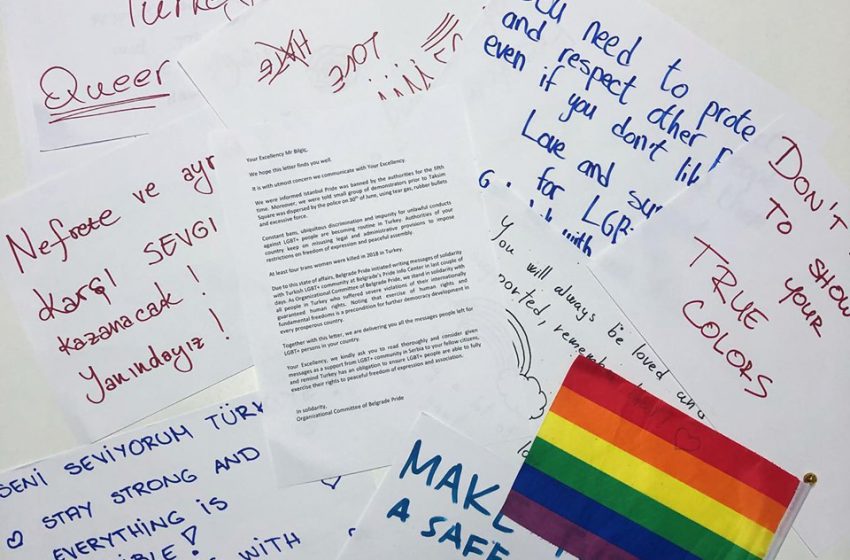 Queer
HATE
LOVE
need to
and respect other
even if you don't
Love and
for
with
Nefrete ve
Karşı SEVGI
kazanacak!
Yanındayız!
Your Excellency Mr Bilgiç,
We hope this letter finds you well.
It is with utmost concern we communicate with Your Excellency.
We were informed Istanbul Pride was banned by the authorities for the fifth
time. Moreover, we were told small group of demonstrators prior to Taksim
Square was dispersed by the police on 30th of June, using tear gas, rubber bullets
and excessive force.
Constant bans, ubiquitous discrimination and impunity for unlawful conducts
against LGBT+ people are becoming routine in Turkey. Authorities of your
country keep on misusing legal and administrative provisions to impose
restrictions on freedom of expression and peaceful assembly.
At least four trans women were killed in 2018 in Turkey.
Due to this state of affairs, Belgrade Pride initiated writing messages of solidarity
with Turkish LGBT+ community at Belgrade's Pride Info Center in last couple of
days. As Organizational Committee of Belgrade Pride, we stand in solidarity with
all people in Turkey who suffered severe violations of their internationally
guaranteed human rights. Noting that exercise of human rights and
fundamental freedoms is a precondition for further democracy development in
every prosperous country.
Together with this letter, we are delivering you all the messages people left for
LGBT+ persons in your country.
Your Excellency, we kindly ask you to read thoroughly and consider given
messages as a support from LGBT+ community in Serbia to your fellow citizens,
and remind Turkey has an obligation to ensure LGBT+ people are able to fully
exercise their rights to peaceful freedom of expression and association.
In solidarity,
Organizational Committee of Belgrade Pride
DON'T
TO SHOW
YOUR
TRUE
COLORS
You will always be loved and
SENI SEVIYORUM
STAY STRONG AND
EVERYTHING IS
WITH
MAKE
A SAFE